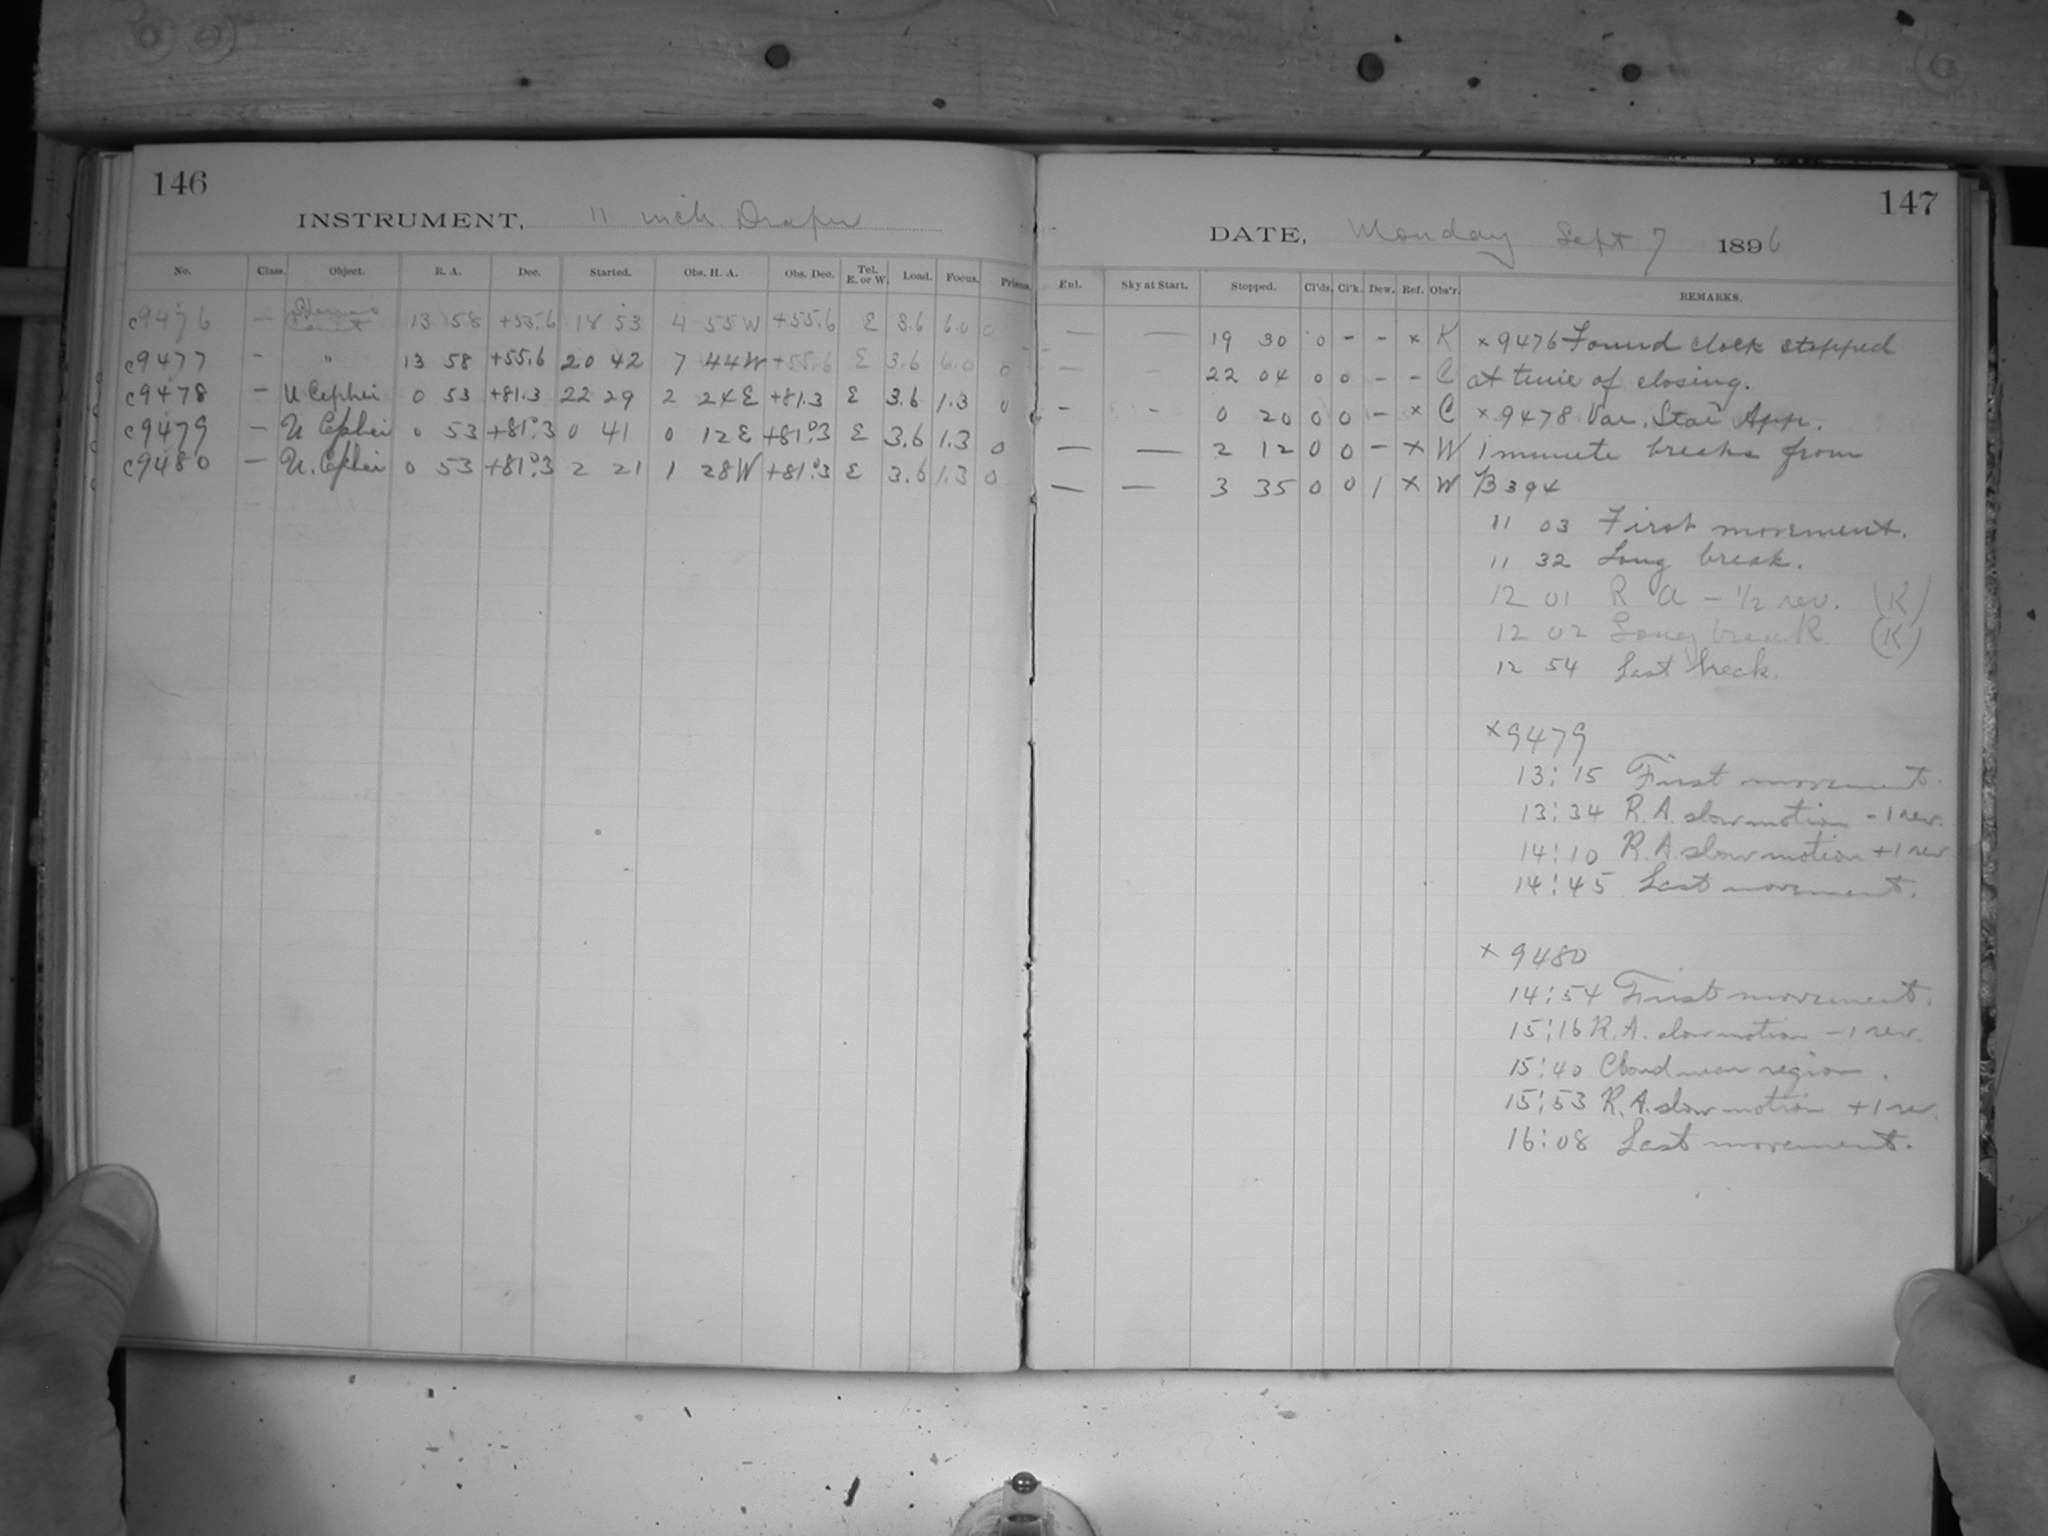 146
INSTRUMENT, 11 inch Draper
No. Class. Object. R. A. Dec. Started. Obs. H. A. Obs. Dec. Tel. E. or W. Load. Focus. Prisms.
c9476 — 13 58 +55.6 18 53 4 55W +55.6 E 3.6 6.0 0
c9477 - " 13 58 +55.6 20 42 7 44W +55.6 E 3.6 6.0 0
c9478 — U Cephei 0 53 +81.3 22 29 2 24E +81.3 E 3.6 1.3 0
c9479 — U Cephei 0 53 +81°.3 0 41 0 12E +81°.3 E 3.6 1.3 0
c9480 — U. Cephei 0 53 +81°.3 2 21 1 28W +81°.3 E 3.6 1.3 0
147
DATE, Monday Sept 7 1896
Enl. Sky at Start. Stopped. Cl'ds. Cl'k. Dew. Ref. Obs'r. REMARKS.
— — 19 30 0 - - × K × 9476 Found clock stopped
— - 22 04 0 0 - - C at time of closing.
- - 0 20 0 0 - × C × 9478 Var. Star App.
— — 2 12 0 0 - × W 1 minute breaks from
— — 3 35 0 0 1 × W B 394
11 03 First movement.
11 32 Long break.
12 01 R A - 1/2 rev. (K)
12 02 Long break. (K)
12 54 Last break.
× 9479
13:15 First movement.
13:34 R.A. slow motion - 1 rev.
14:10 R.A. slow motion + 1 rev
14:45 Last movement.
× 9480
14:54 First movement.
15:16 R.A. slow motion - 1 rev.
15:40 Cloud near region.
15:53 R.A. slow motion + 1 rev.
16:08 Last movement.